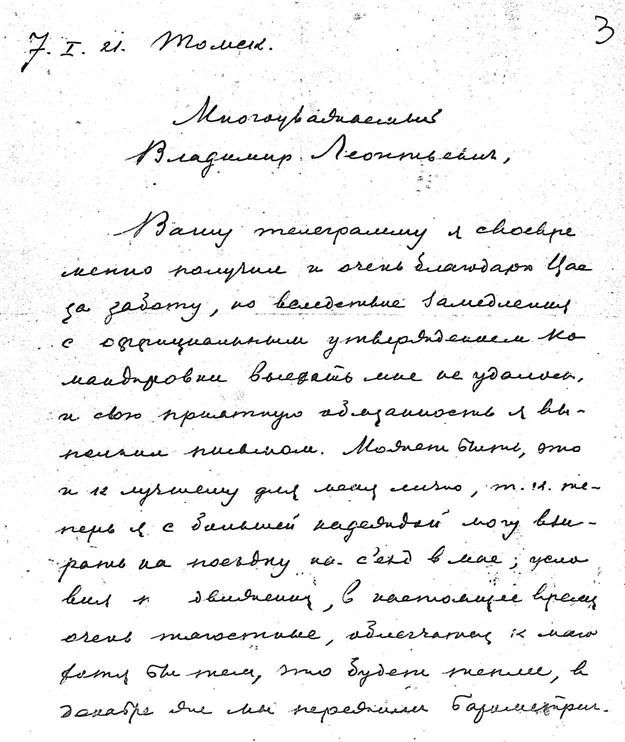 3
7. I. 21. Томск.
Многоуважаемый
Владимир Леонтьевич,
Вашу телеграмму я своевре
менно получил и очень благодарю Вас
за заботу, но вследствие замедления
с оффициальным утверждением ко
мандировки выехать мне не удалось,
и свою приятную обязанность я вы-
полнил письмом. Может быть, это
и к лучшему для меня лично, т.к. те-
перь я с большей надеждой могу взи-
рать на поездку на съезд в мае; усло
вия движения, в настоящее время
очень тягостные, облегчатся к маю
хотя бы тем, что будет теплее, в
декабре же мы пережили